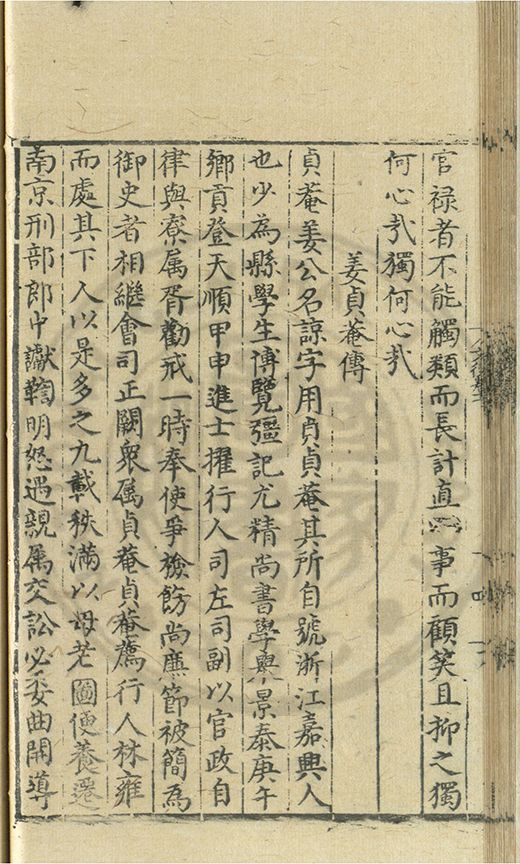 官禄者不能觸類而長計直㸃事而顧笑且抑之獨
何心㢤獨何心㢤
姜貞菴傳
貞菴姜公名諒字用貞貞菴其所自號浙江嘉興人
也少為縣學生博覽彊記尤精尚書學舉景泰庚午
鄉貢登天順甲申進士擢行人司左司副以官政自
律與寮属胥勸戒一時奉使爭檢飭尚廉節被簡為
御史者相繼會司正闕衆属貞菴貞菴薦行人林雍
而處其下人以是多之九載秩滿以母老圖便養遷
南京刑部郎中讞鞫明恕遇親属交訟必委曲開導